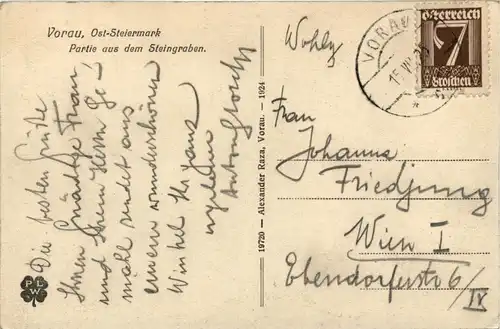 Vorau, Ost-Steiermark
Partie aus dem Steingraben.
Die besten Grüße
Ihnen Gnädige Frau
und Ihrem Herrn Ge-
mahl sendet aus
einem wunderschönen
Winkel
19720 – Alexander Raza, Vorau. – 1924
PLWF
Österreich
7
Groschen
VORAU
Frau
Johanna
Friedjung
Wien I
Ebendorferstr 6/
IV